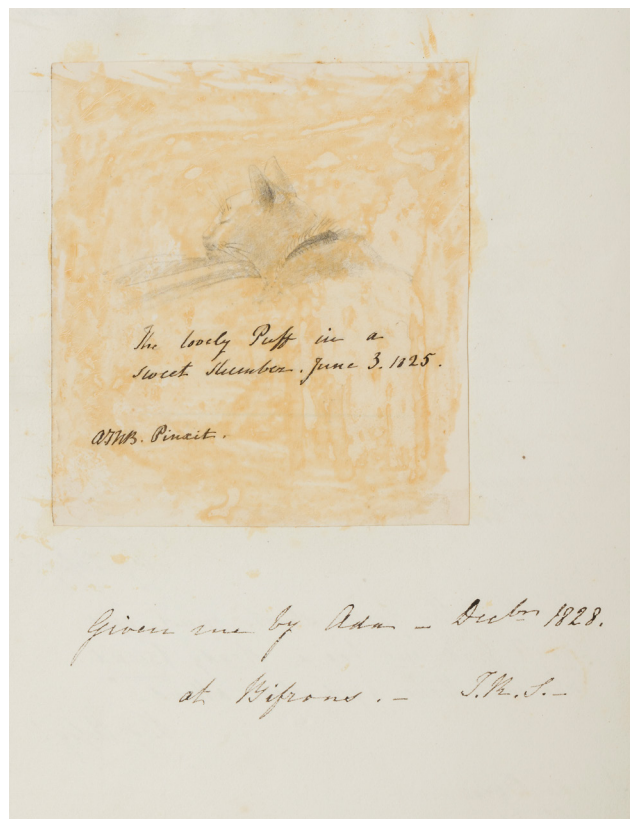 The lovely Puff in a
sweet slumber. June 3. 1825.
Pinxit.
Given me by Ada — Decbr 1828.
at Bifrons. — T.R.S.—